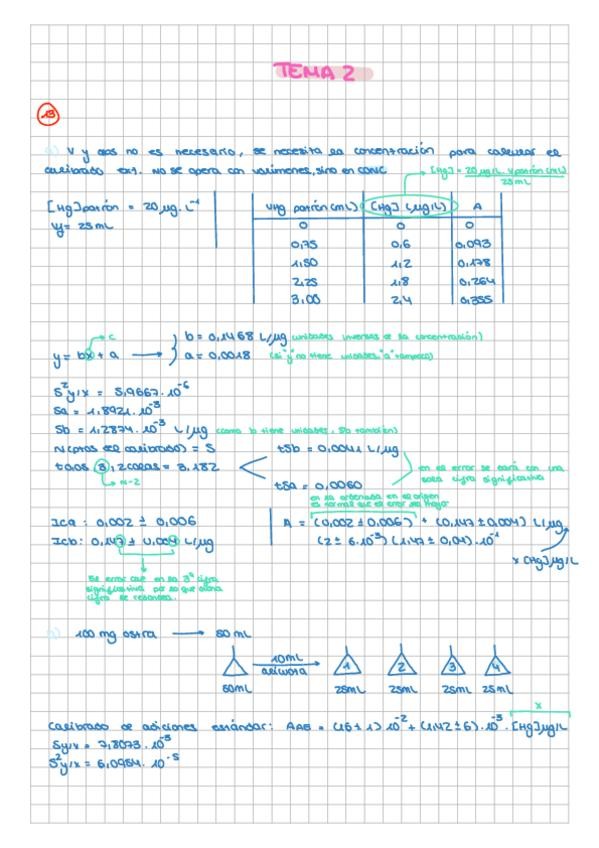 TEMA 2
13
a) V y abs no es necesario, se necesita la concentración para calcular el
calibrado ext. no se opera con volúmenes, sino en CONC
[Hg] = 20 µg/L · Vpatrón (mL)
25 mL
[Hg]patrón = 20 µg · L⁻¹
Vf = 25 mL
VHg patrón (mL) [Hg] (µg/L) A
0 0 0
0,75 0,6 0,093
1,50 1,2 0,178
2,25 1,8 0,264
3,00 2,4 0,355
c
b = 0,1468 L/µg (unidades inversas de la concentración)
y = bx + a
a = 0,0018 (si "y" no tiene unidades, "a" tampoco)
S²y/x = 5,9667 · 10⁻⁶
Sa = 1,8921 · 10⁻³
Sb = 1,2874 · 10⁻³ L/µg (como b tiene unidades, Sb también)
N (ptos del calibrado) = 5
t0,05, 3, 2 colas = 3,182
N-2
tSb = 0,0041 L/µg
tSa = 0,0060
en el error se dará con una
sola cifra significativa
en la ordenada en el origen
es normal que el error sea mayor
ICa: 0,002 ± 0,006
ICb: 0,147 ± 0,004 L/µg
A = (0,002 ± 0,006) + (0,147 ± 0,004) L/µg
(2 ± 6 · 10⁻³) (1,47 ± 0,04) · 10⁻¹
x [Hg] µg/L
El error cae en la 3ª cifra
significativa por lo que ahora
cifra se redondea.
b) 100 mg ostra → 50 mL
10 mL
alícuota
1 2 3 4
50 mL 25 mL 25 mL 25 mL 25 mL
x
Calibrado de adiciones estándar: AAE = (16 ± 1) · 10⁻² + (1,42 ± 6) · 10⁻³ · [Hg] µg/L
Sy/x = 7,8073 · 10⁻³
S²y/x = 6,0954 · 10⁻⁵